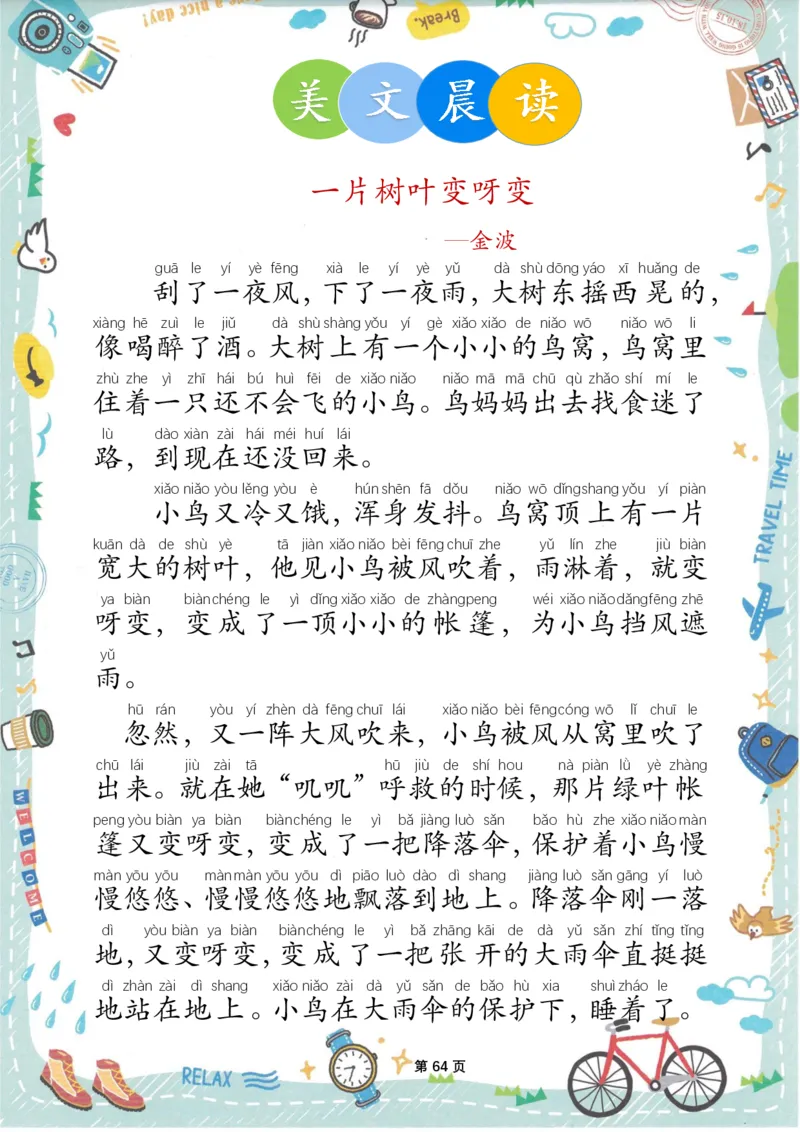 Have a nice day!
Break.
美文晨读
一片树叶变呀变
—金波
guā le yí yè fēng xià le yí yè yǔ dà shù dōng yáo xī huǎng de
刮了一夜风，下了一夜雨，大树东摇西晃的，
xiàng hē zuì le jiǔ dà shù shàng yǒu yí gè xiǎo xiǎo de niǎo wō niǎo wō li
像喝醉了酒。大树上有一个小小的鸟窝，鸟窝里
zhù zhe yì zhī hái bú huì fēi de xiǎo niǎo niǎo mā mā chū qù zhǎo shí mí le
住着一只还不会飞的小鸟。鸟妈妈出去找食迷了
lù dào xiàn zài hái méi huí lái
路，到现在还没回来。
xiǎo niǎo yòu lěng yòu è hún shēn fā dǒu niǎo wō dǐng shang yǒu yí piàn
小鸟又冷又饿，浑身发抖。鸟窝顶上有一片
kuān dà de shù yè tā jiàn xiǎo niǎo bèi fēng chuī zhe yǔ lín zhe jiù biàn
宽大的树叶，他见小鸟被风吹着，雨淋着，就变
ya biàn biàn chéng le yì dǐng xiǎo xiǎo de zhàng peng wéi xiǎo niǎo dǎng fēng zhē
呀变，变成了一顶小小的帐篷，为小鸟挡风遮
yǔ
雨。
hū rán yòu yí zhèn dà fēng chuī lái xiǎo niǎo bèi fēng cóng wō lǐ chuī le
忽然，又一阵大风吹来，小鸟被风从窝里吹了
chū lái jiù zài tā hū jiù de shí hou nà piàn lǜ yè zhàng
出来。就在她“叽叽”呼救的时候，那片绿叶帐
peng yòu biàn ya biàn biàn chéng le yì bǎ jiàng luò sǎn bǎo hù zhe xiǎo niǎo màn
篷又变呀变，变成了一把降落伞，保护着小鸟慢
màn yōu yōu màn màn yōu yōu dì piāo luò dào dì shang jiàng luò sǎn gāng yí luò
慢悠悠、慢慢悠悠地飘落到地上。降落伞刚一落
dì yòu biàn ya biàn biàn chéng le yì bǎ zhāng kāi de dà yǔ sǎn zhí tǐng tǐng
地，又变呀变，变成了一把张开的大雨伞直挺挺
dì zhàn zài dì shang xiǎo niǎo zài dà yǔ sǎn de bǎo hù xia shuì zháo le
地站在地上。小鸟在大雨伞的保护下，睡着了。
TRAVEL TIME
WELCOME
RELAX
第 64 页